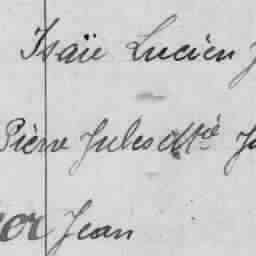 Isaïe Lucien J
Pierre Jules Mie Ju
or Jean